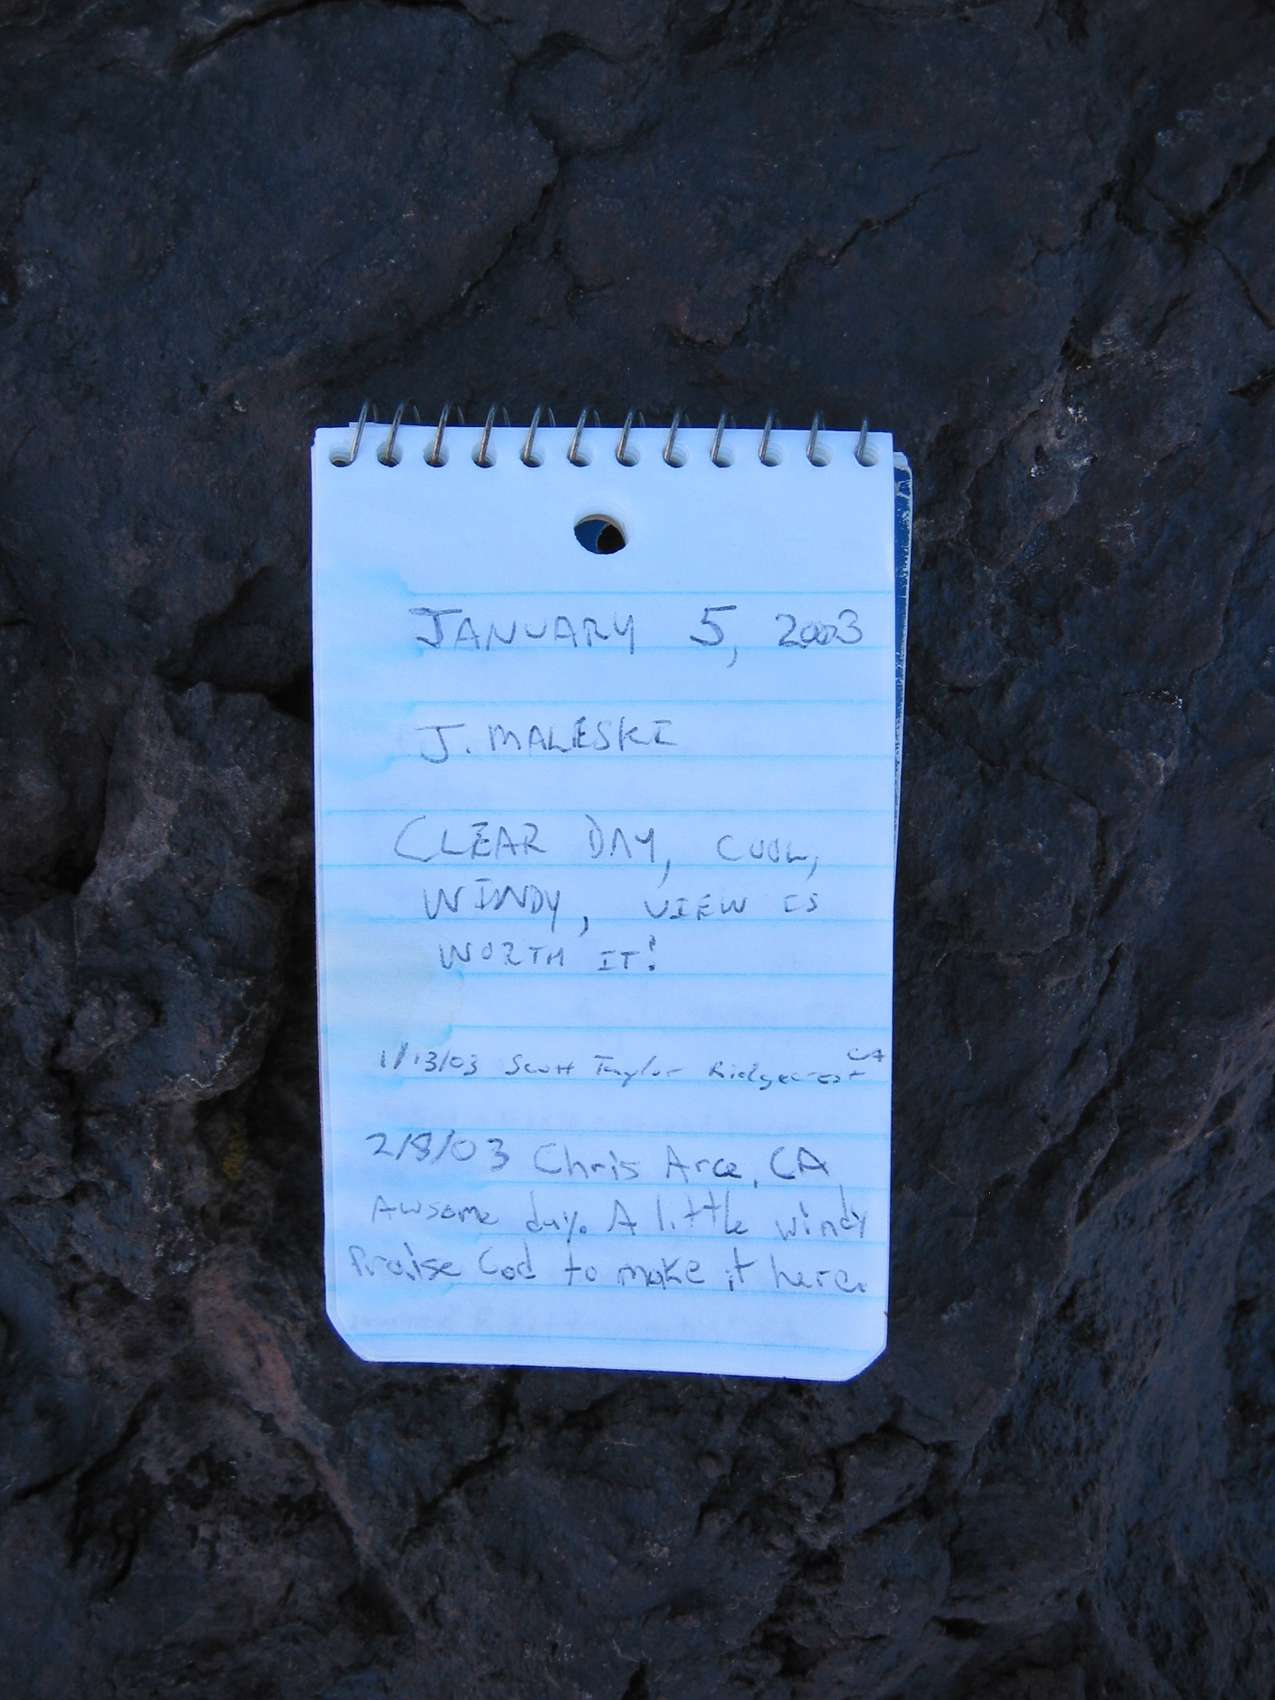 JANUARY 5, 2003
J. MALESKI
CLEAR DAY, COOL,
WINDY, VIEW IS
WORTH IT!
1/13/03 Scott Taylor Ridgecrest CA
2/8/03 Chris Arce, CA
Awsome day. A little windy
Praise God to make it here.